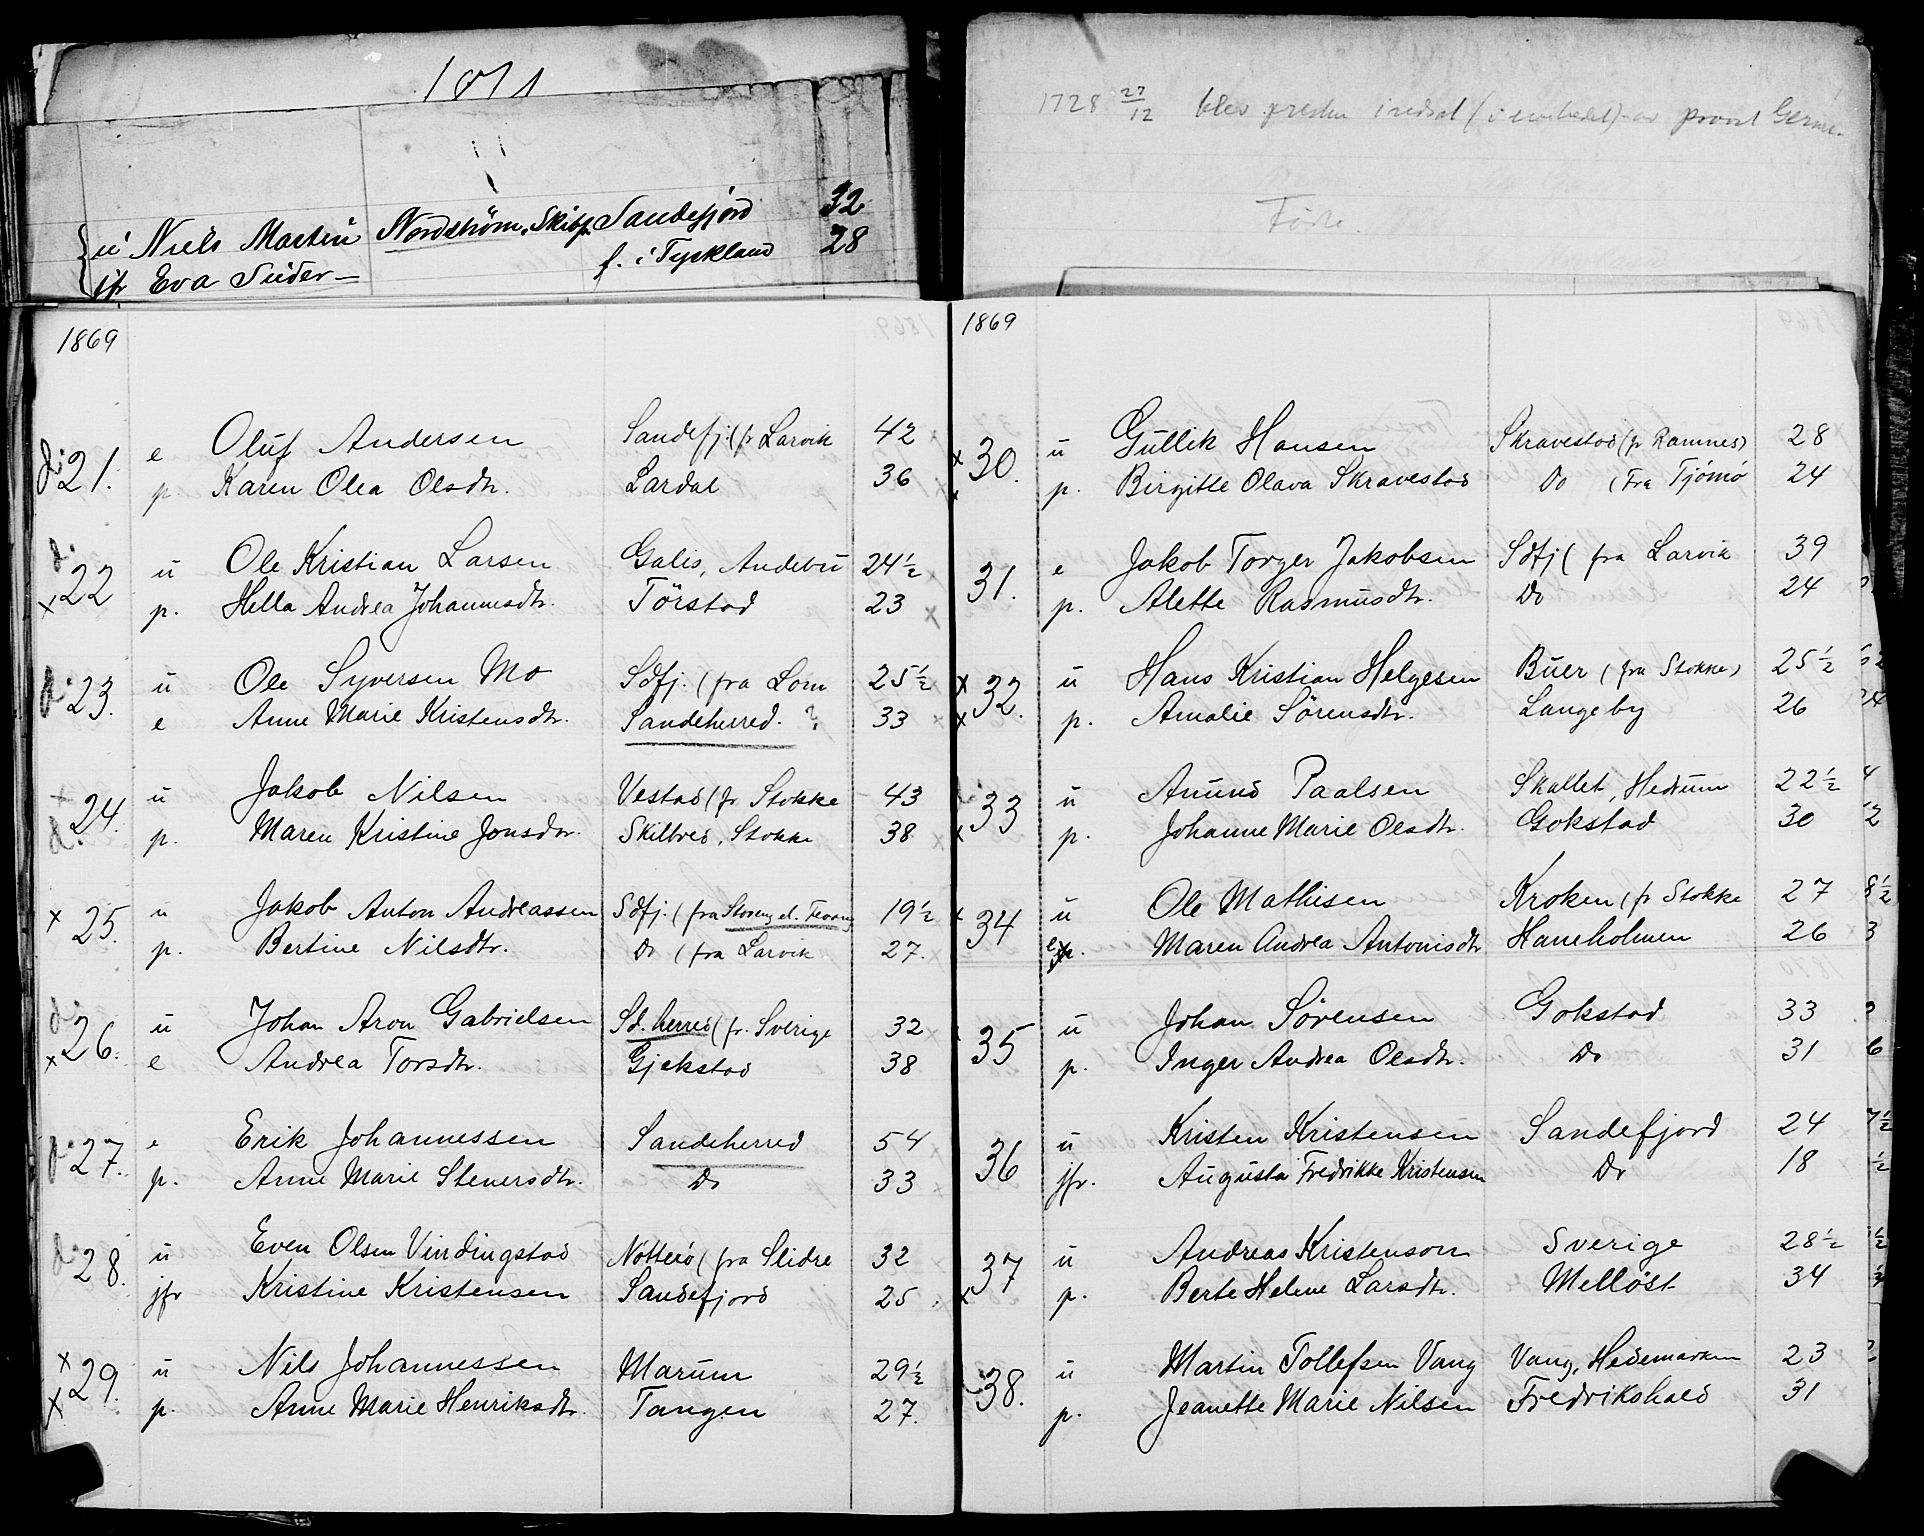 1871
u Niels Martin Nordstrøm, Skibsf. Sandefjord 32
jfr Eva Suder — f. i Tyskland 28
1869
21. e Oluf Andersen Sandefj. (fr Larvik 42
p. Karen Olea Olsdtr. Lardal 36
22 u Ole Kristian Larsen Galis, Andebu 24½
p. Hella Andrea Johannesdtr. Törstad 23
23. u Ole Syversen Mo Sdfj. (fra Lom 25½
e Anne Marie Kristensdtr. Sandeherred. ? 33
24. u Jakob Nilsen Vestad (fr Stokke 43
p. Maren Kristine Jonsdtr. Skiltved, Stokke 38
25. u Jakob Anton Andreassen Sdfj. (fra el. 19½
p. Bertine Nilsdtr. Do (fra Larvik 27.
26. u Johan Aron Gabrielsen Sd. herred (fr. Sverige 32
e Andrea Torsdtr. Gjekstad 38
27. e Erik Johannessen Sandeherred 54
p. Anne Marie Stenersdtr. Do 33
28. u Even Olsen Vindingstad Notterö (fra Slidre 32
jfr Kristine Kristensen Sandefjord 25
29. u Nils Johannessen Marum 29½
p. Anne Marie Henriksdtr. Tangen 27.
1728 27/12 blev presten indsat (i embedet) av provst
Födte.
1869
30. u Gullik Hansen Skravestad (fr Ramnes) 28
p. Birgitte Olava Skravestad Do (Fra Tjömö 24
31. e Jakob Torger Jakobsen Sdfj (fra Larvik 39
p. Alette Rasmusdtr. Do 24
32. u Hans Kristian Helgesen Buer (fra Stokke) 25½
p. Amalie Sörensdtr. Langeby 26
33 u Amund Paalsen Skallet, Hedrum 22½
p. Johanne Marie Olsdtr. Gokstad 30
34 u Ole Mathisen Kroken (fr Stokke 27
e Maren Andrea Antonisdtr Haneholmen 26
35 u Johan Sörensen Gokstad 33
p. Inger Andrea Olsdtr. Do 31
36 u Kristen Kristensen Sandefjord 24
jfr. Augusta Fredrikke Kristensen Do 18
37 u Andreas Kristenson Sverige 28½
p. Berte Helene Larsdtr. Melløst 34
38. u Martin Tollefsen Vang Vang, Hedemarken 23
p. Jeanette Marie Nilsen Fredrikshald 31